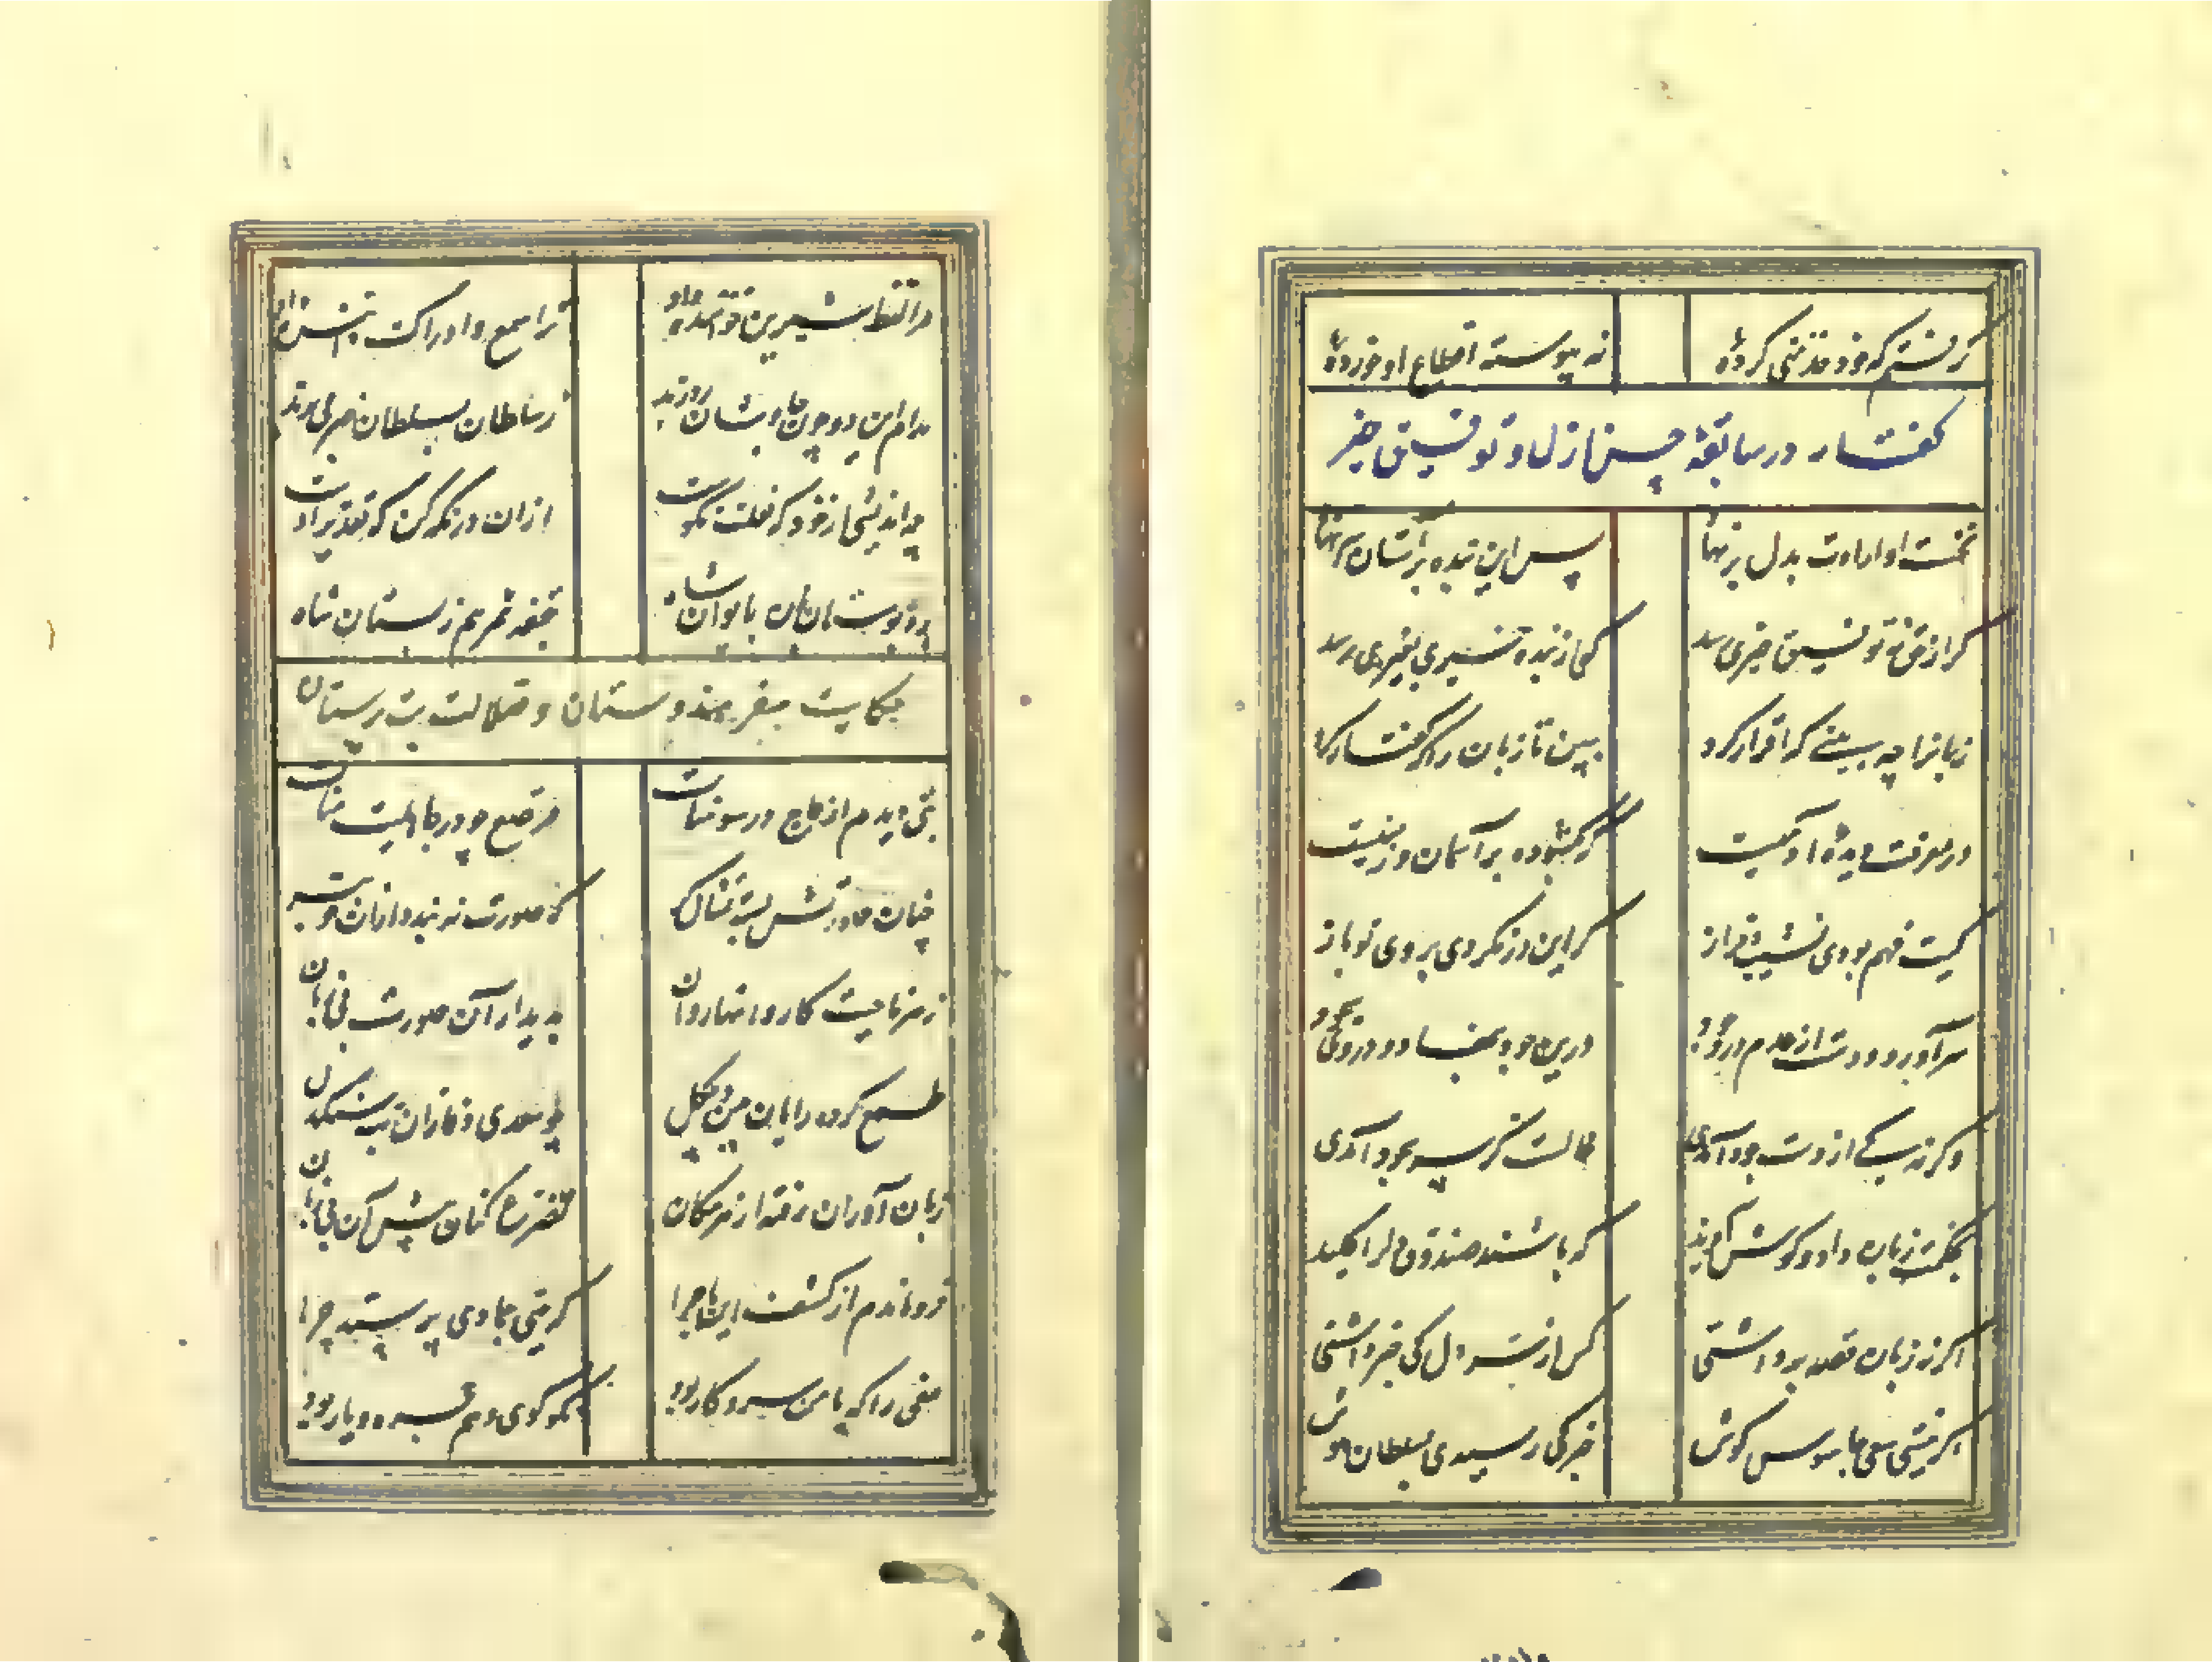 گرفتم که خود خدمتی کرده‌ٔ نه پیوسته اقطاع او خورده‌ٔ
گفتار در سابقهٔ حسن ازل و توفیق خیر
نخست او ارادت بدل برنهاد پس این بنده بر آستان سر نهاد
گر از حق نه توفیق خیری رسد کی از بنده خیری بغیری رسد
زبانرا چه بینی که اقرار کرد ببین تا زبان را که گفتار کرد
در معرفت دیدهٔ آدمیست که بگشوده بر آسمان و زمینست
کیت فهم بودی نشیب و فراز گر این در نکردی بروی تو باز
سر آورد و دست از عدم در وجود درین جود بنهاد و در وی سجود
وگرنه کی از دست جود آمدی محالست کز سر سجود آمدی
بحکمت زبان داد و گوش آفرید که باشند صندوق دلرا کلید
اگر نه زبان قصه برداشتی کس از سر دل کی خبر داشتی
اگر نیستی سعی جاسوس گوش خبر کی رسیدی بسلطان هوش
مرا لفظ شیرین خواننده داد ترا سمع و ادراک داننده داد
مدام این دو چون حاجبان بر درند ز سلطان بسلطان خبر می‌برند
چه اندیشی از خود که فعلت نکوست ازان در نگه کن که تقدیر اوست
برد بوستان‌بان بایوان شاه بتحفه ثمر هم ز بستان شاه
حکایت سفر هندوستان و ضلالت بت پرستان
بتی دیدم از عاج در سومنات مرصع چو در جاهلیت منات
چنان صورتش بسته تمثال گر که صورت نه بندد ازان خوبتر
ز هر ناحیت کاروانها روان بدیدار آن صورت بی روان
طمع کرده رایان چین و چگل چو سعدی وفا زان بت سنگدل
زبان آوران رفته از هر مکان تضرع کنان پیش آن بی زبان
فروماندم از کشف این ماجرا که حیی جمادی پرستد چرا
مغی را که با من سر و کار بود نکو گوی و هم حجره و یار بود